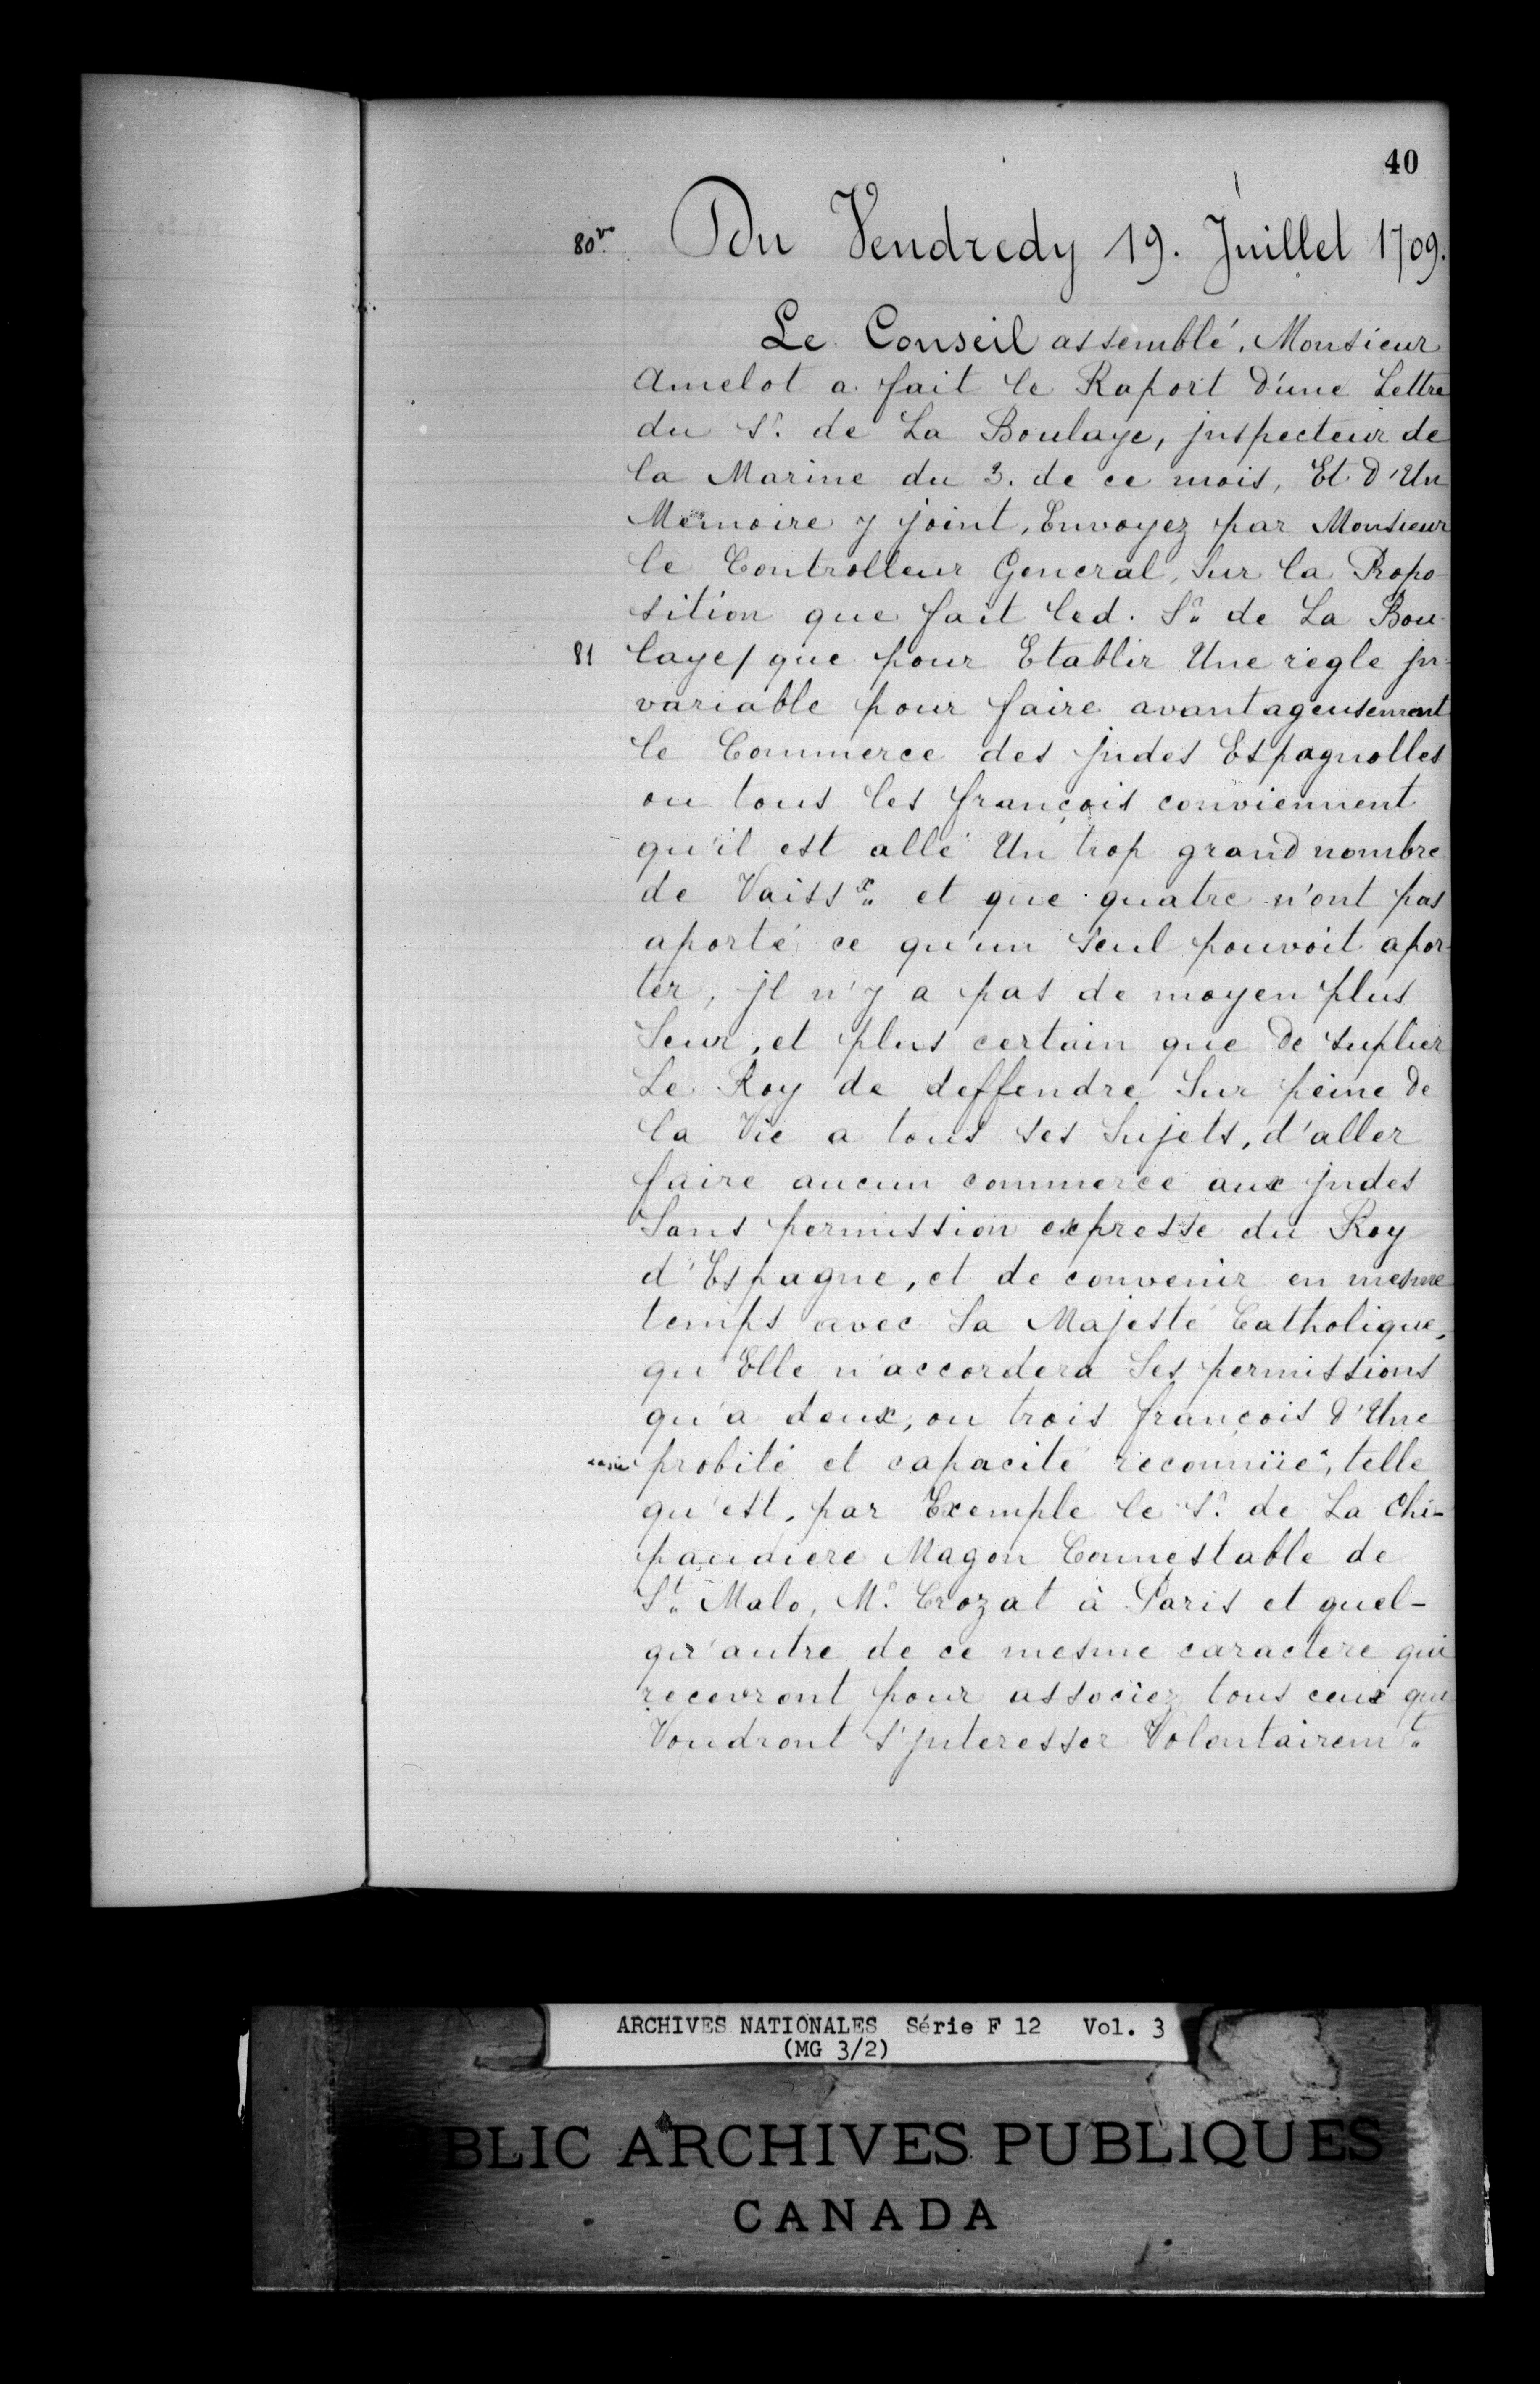 40
80vo. Du Vendredy 19. Juillet 1709.
Le Conseil assemblé, Monsieur
Amelot a fait le Raport d'une Lettre
du Sr. de La Boulaye, jnspecteur de
la Marine du 3. de ce mois, Et d'Un
Memoire y joint, Envoyez par Monsieur
le Controlleur General, Sur la Propo-
sition que fait led. Sr. de La Bou-
81 laye/ que pour Etablir Une regle jn-
variable pour faire avantageusement
le Commerce des jndes Espagnolles
ou tous les françois conviennent
qu'il est allé Un trop grand nombre
de Vaissx. et que quatre n'ont pas
aporté ce qu'un Seul pouvoit apor-
ter, jl n'y a pas de moyen plus
Seur, et plus certain que de suplier
Le Roy de deffendre Sur peine de
la Vie a tous ses Sujets, d'aller
faire aucun commerce aux jndes
Sans permission expresse du Roy
d'Espagne, et de convenir en mesme
temps avec Sa Majesté Catholique,
qu'Elle n'accordera Ses permissions
qu'a deux, ou trois françois d'Une
probité et capacité reconnüe, telle
qu'est, par Exemple le Sr. de La Chi-
paudiere Magon Connestable de
St. Malo, Mr. Crozat à Paris et quel-
qu'autre de ce mesme caractere qui
recevront pour associez tous ceux qui
Voudront s'jnteresser Volontairemt.
ARCHIVES NATIONALES Série F 12 Vol. 3
(MG 3/2)
BLIC ARCHIVES PUBLIQUES
CANADA